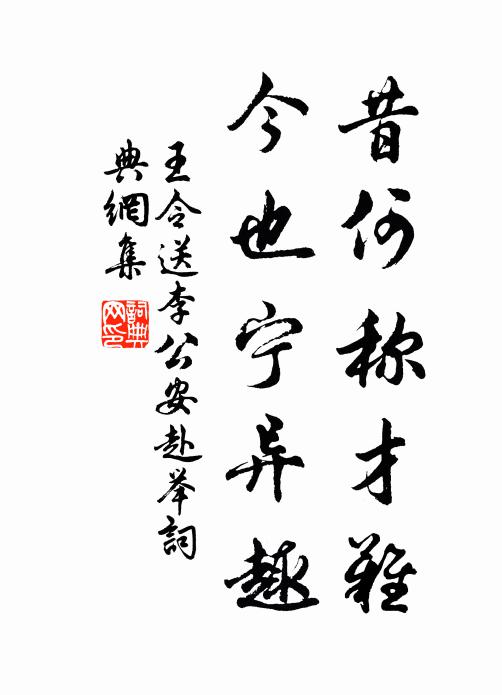 昔何称才難
今也宁异趣
王令送李公安赴举詞
典網集
詞典網印